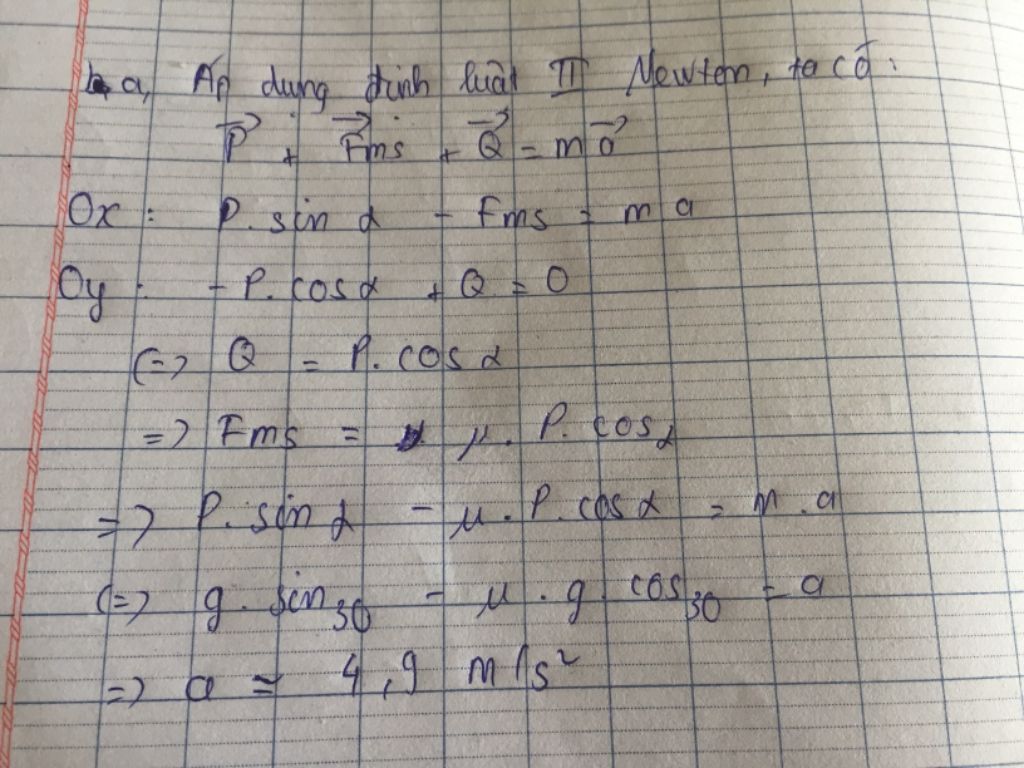 a, Áp dụng định luật II Newton, ta có:
P⃗ + F⃗ms + Q⃗ = m a⃗
Ox: P. sin α - Fms = m a
Oy: - P. cos α + Q = 0
(=) Q = P. cos α
=) Fms = μ. P. cos α
=) P. sin α - μ. P. cos α = m . a
(=) g. sin 30 - μ . g. cos 30 = a
=) a = 4,9 m/s²